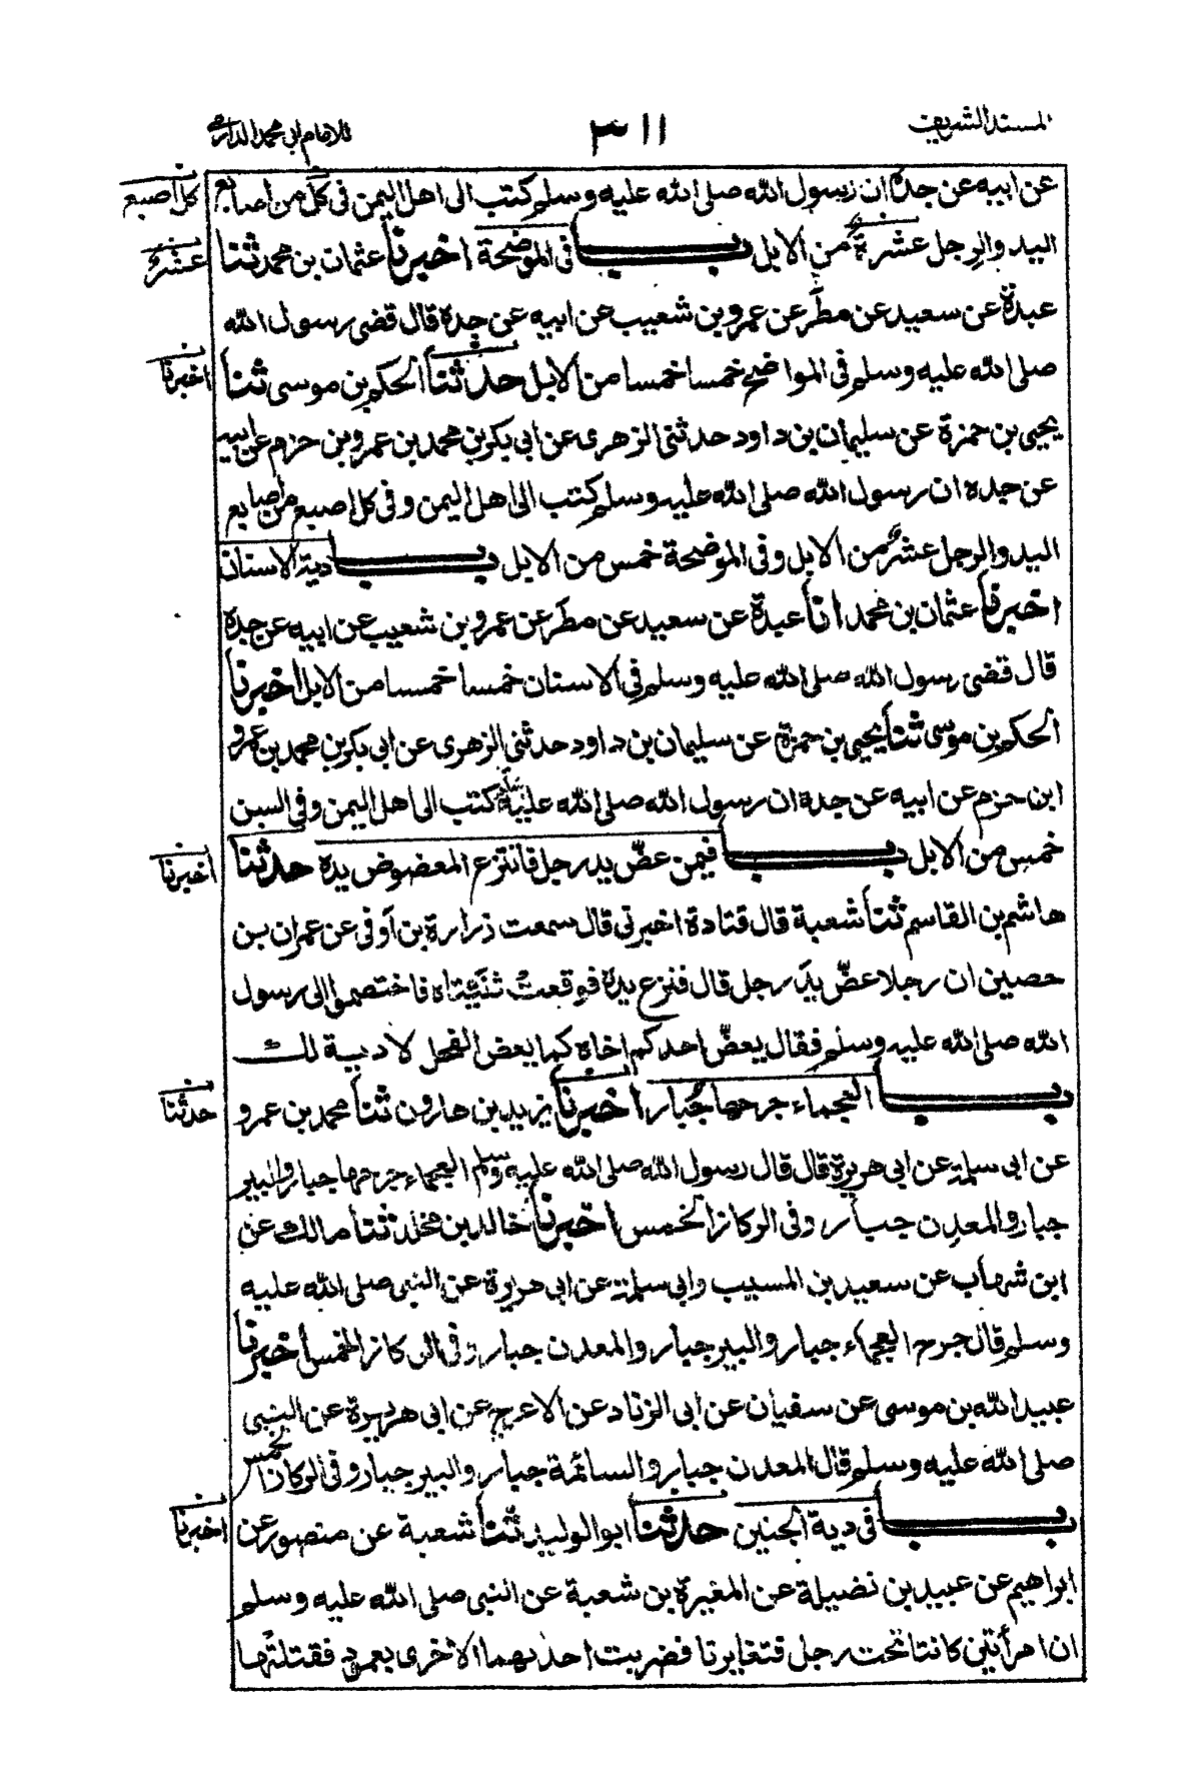 المسند الشريف
٣١١
للامام ابى محمد الدارمى
عن ابيه عن جده ان رسول الله صلى الله عليه وسلم كتب الى اهل اليمن فى كل من اصابع
كل اصبع
اليد والرجل عشرة من الابل باب فى الموضحة اخبرنا عثمان بن محمد ثنا
عشر
عبدة عن سعيد عن مطر عن عمرو بن شعيب عن ابيه عن جده قال قضى رسول الله
صلى الله عليه وسلم فى المواضح خمسا خمسا من الابل حدثنا الحكم بن موسى ثنا
اخبرنا
يحيى بن حمزة عن سليمان بن داود حدثنى الزهرى عن ابى بكر بن محمد بن عمرو بن حزم عن ابيه
عن جده ان رسول الله صلى الله عليه وسلم كتب الى اهل اليمن وفى كل اصبع من اصابع
اليد والرجل عشر من الابل وفى الموضحة خمس من الابل باب دية الاسنان
اخبرنا عثمان بن محمد انا عبدة عن سعيد عن مطر عن عمرو بن شعيب عن ابيه عن جده
قال قضى رسول الله صلى الله عليه وسلم فى الاسنان خمسا خمسا من الابل اخبرنا
الحكم بن موسى ثنا يحيى بن حمزة عن سليمان بن داود حدثنى الزهرى عن ابى بكر بن محمد بن عمرو
ابن حزم عن ابيه عن جده ان رسول الله صلى الله عليه وسلم كتب الى اهل اليمن وفى السن
خمس من الابل باب فيمن عضّ يد رجل فانتزع المعضوض يده حدثنا
اخبرنا
هاشم بن القاسم ثنا شعبة قال قتادة اخبرنى قال سمعت زرارة بن أوفى عن عمران بن
حصين ان رجلا عضّ يد رجل قال فنزع يده فوقعت ثنيتاه فاختصموا الى رسول
الله صلى الله عليه وسلم فقال يعضّ احدكم اخاه كما يعض الفحل لا دية لك
باب العجماء جرحها جبار اخبرنا يزيد بن هارون ثنا محمد بن عمرو
حدثنا
عن ابى سلمة عن ابى هريرة قال قال رسول الله صلى الله عليه وسلم العجماء جرحها جبار والبير
جبار والمعدن جبار وفى الركاز الخمس اخبرنا خالد بن مخلد ثنا مالك عن
ابن شهاب عن سعيد بن المسيب وابى سلمة عن ابى هريرة عن النبى صلى الله عليه
وسلم قال جرح العجماء جبار والبير جبار والمعدن جبار وفى الركاز الخمس اخبرنا
عبيد الله بن موسى عن سفيان عن ابى الزناد عن الاعرج عن ابى هريرة عن النبى
صلى الله عليه وسلم قال المعدن جبار والسائمة جبار والبير جبار وفى الركاز الخمس
باب فى دية الجنين حدثنا ابو الوليد ثنا شعبة عن منصور عن
اخبرنا
ابراهيم عن عبيد بن نضيلة عن المغيرة بن شعبة عن النبى صلى الله عليه وسلم
ان امرأتين كانتا تحت رجل فتغايرتا فضربت احدهما الاخرى بعمود فقتلتها